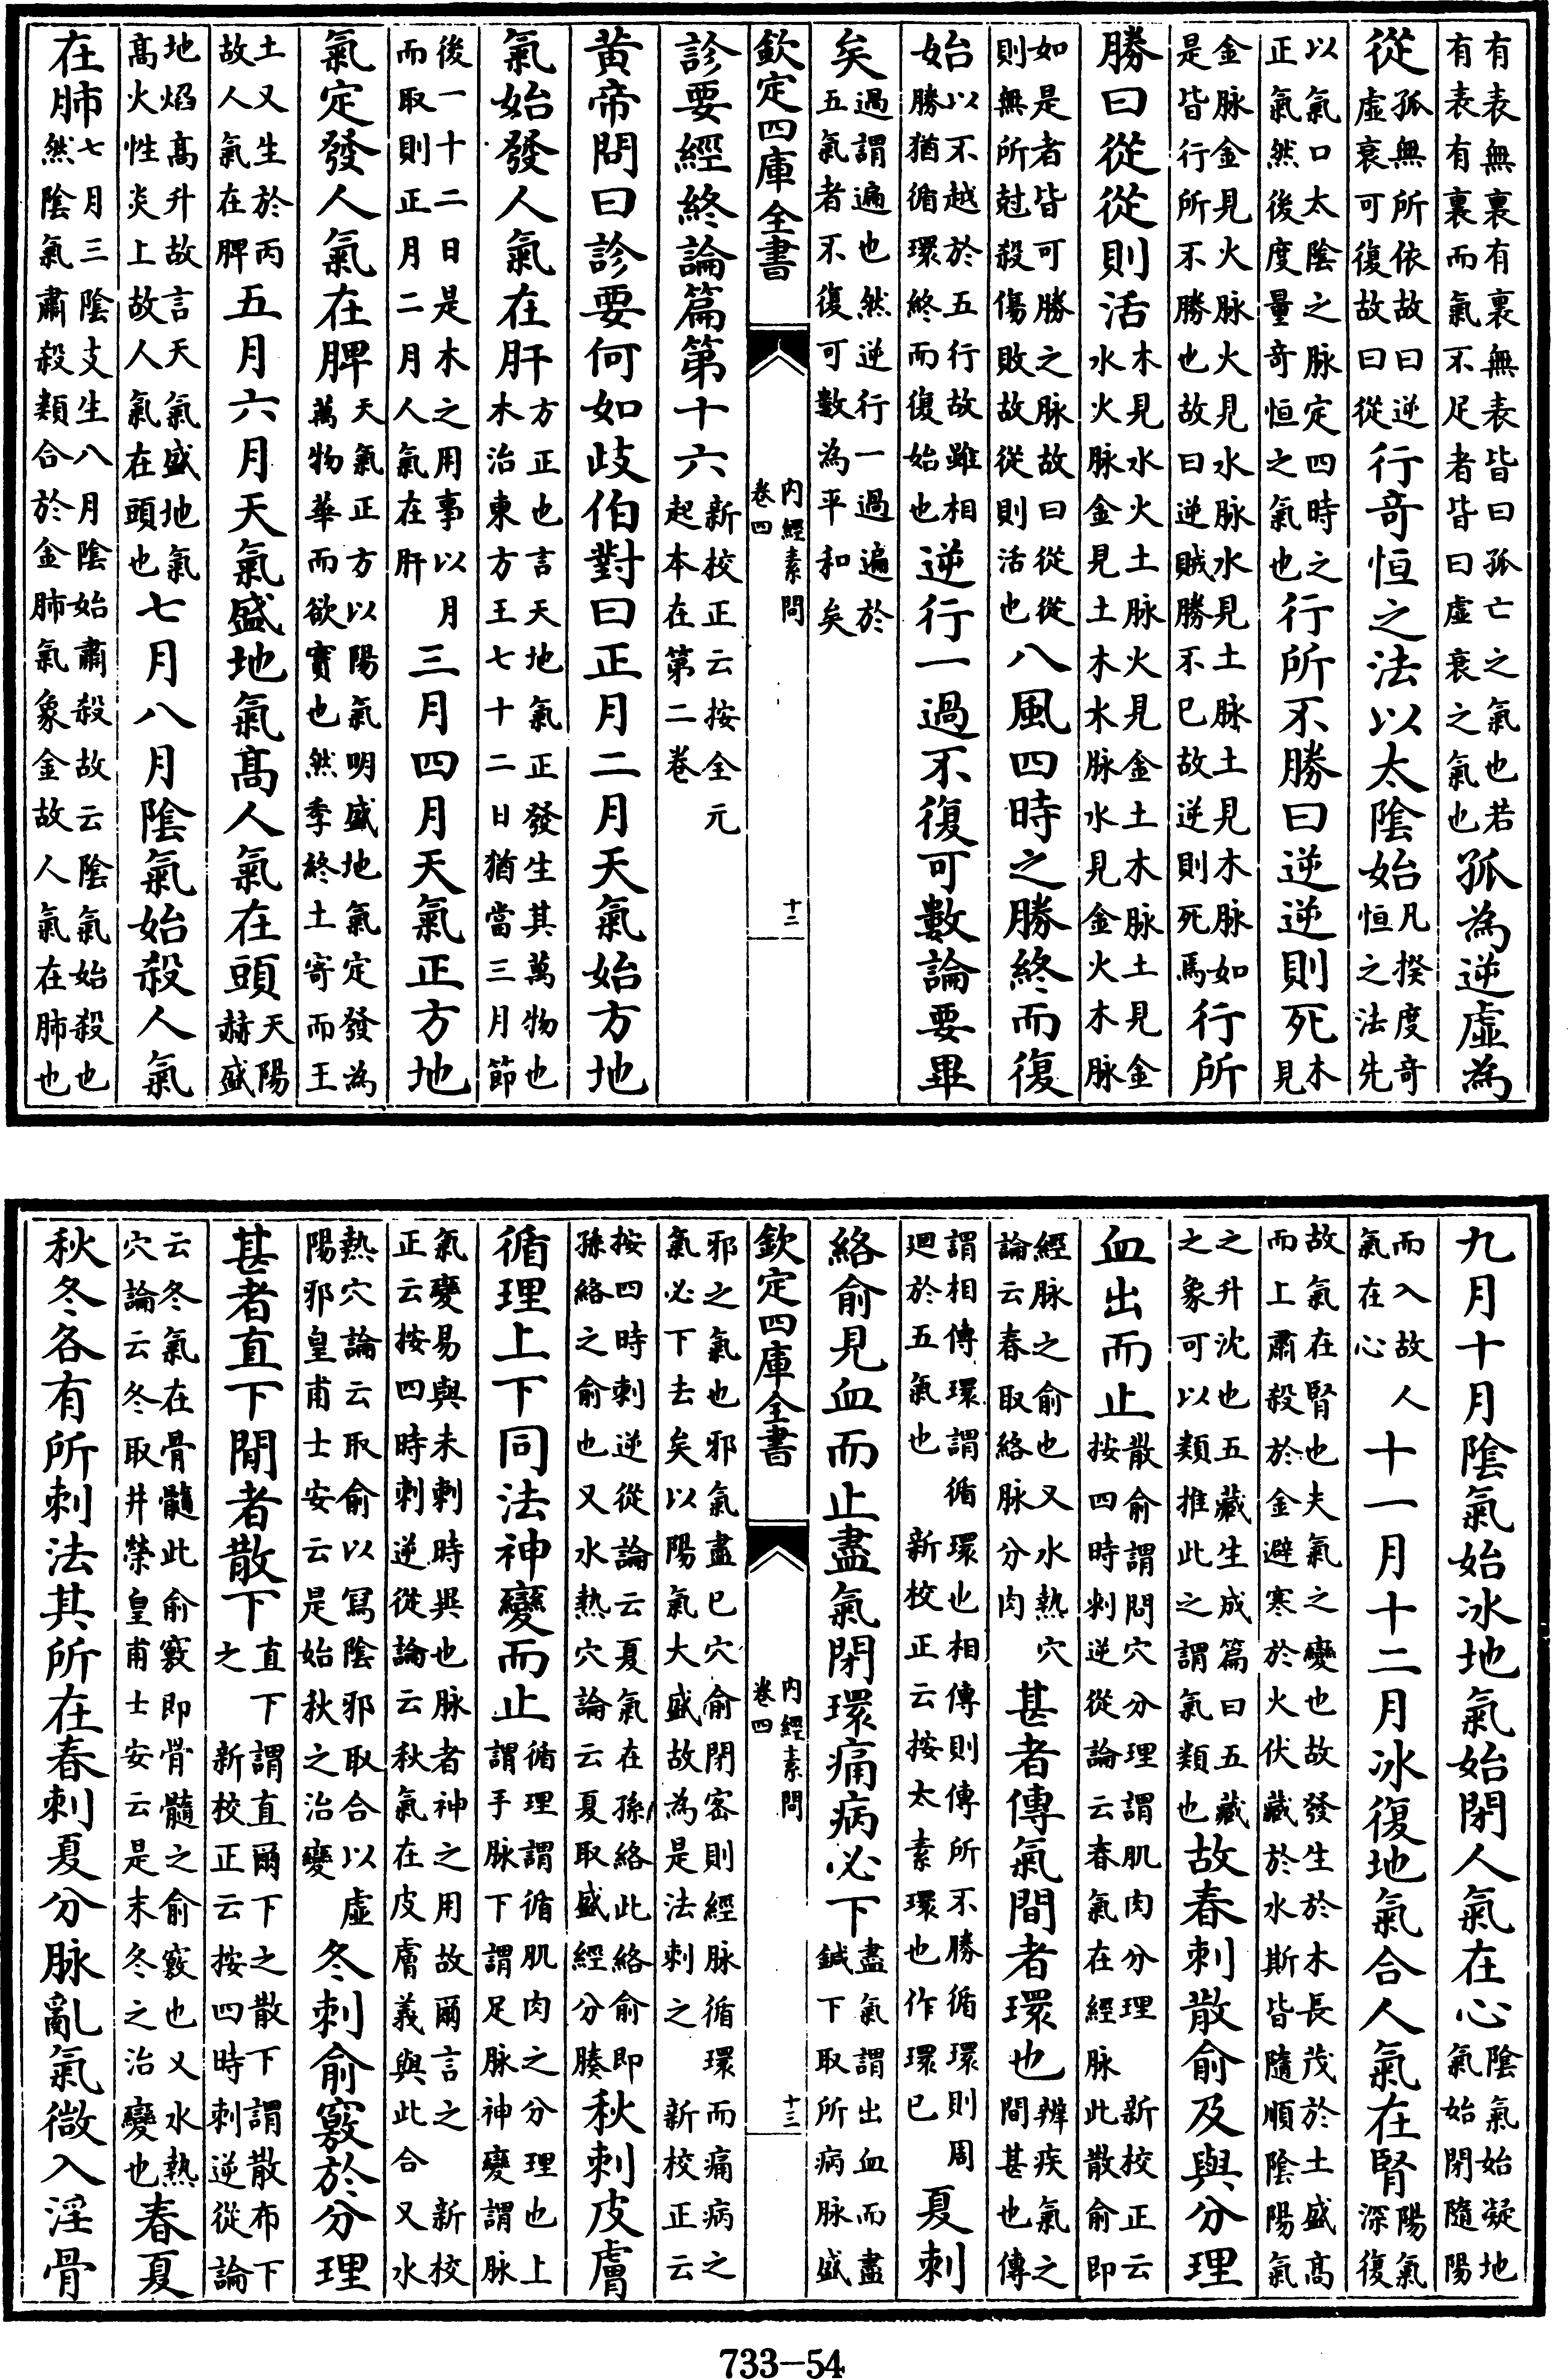 有表無裏有裏無表皆曰孤亡之氣也若
有表有裏而氣不足者皆曰虛衰之氣也孤為逆虛為
從孤無所依故曰逆
虛衰可復故曰從行奇恒之法以太陰始凡揆度奇
恒之法先
以氣口太陰之脉定四時之
正氣然後度量奇恒之氣也行所不勝曰逆逆則死木
見
金脉金見火脉火見水脉水見土脉土見木脉如
是皆行所不勝也故曰逆賊勝不已故逆則死焉行所
勝曰從從則活木見水火土脉火見金土木脉土見金
水火脉金見土木水脉水見金火木脉
如是者皆可勝之脉故曰從從
則無所尅殺傷敗故從則活也八風四時之勝終而復
始以不越於五行故雖相
勝猶循環終而復始也逆行一過不復可數論要畢
矣過謂遍也然逆行一過遍於
五氣者不復可數為平和矣
欽定四庫全書
内經素問
卷四
十二
診要經終論篇第十六新校正云按全元
起本在第二卷
黄帝問曰診要何如歧伯對曰正月二月天氣始方地
氣始發人氣在肝方正也言天地氣正發生其萬物也
木治東方王七十二日猶當三月節
後一十二日是木之用事以月
而取則正月二月人氣在肝三月四月天氣正方地
氣定發人氣在脾天氣正方以陽氣明盛地氣定發為
萬物華而欲實也然季終土寄而王
土又生於丙
故人氣在脾五月六月天氣盛地氣髙人氣在頭天陽
赫盛
地熖髙升故言天氣盛地氣
髙火性炎上故人氣在頭也七月八月陰氣始殺人氣
在肺七月三陰支生八月陰始肅殺故云陰氣始殺也
然陰氣肅殺類合於金肺氣象金故人氣在肺也
九月十月陰氣始冰地氣始閉人氣在心陰氣始凝地
氣始閉隨陽
而入故人
氣在心十一月十二月冰復地氣合人氣在腎陽氣
深復
故氣在腎也夫氣之變也故發生於木長茂於土盛髙
而上肅殺於金避寒於火伏藏於水斯皆隨順陰陽氣
之升沈也五藏生成篇曰五藏
之象可以類推此之謂氣類也故春刺散俞及與分理
血出而止散俞謂間穴分理謂肌肉分理新校正云
按四時刺逆從論云春氣在經脉此散俞即
經脉之俞也又水熱穴
論云春取絡脉分肉甚者傳氣間者環也辨疾氣之
間甚也傳
謂相傳環謂循環也相傳則傳所不勝循環則周
廻於五氣也新校正云按太素環也作環已夏刺
絡俞見血而止盡氣閉環痛病必下盡氣謂出血而盡
鍼下取所病脉盛
邪之氣也邪氣盡已穴俞閉宻則經脉循環而痛病之
氣必下去矣以陽氣大盛故為是法刺之新校正云
欽定四庫全書
内經素問
卷四
十三
按四時刺逆從論云夏氣在孫絡此絡俞即
孫絡之俞也又水熱穴論云夏取盛經分腠秋刺皮膚
循理上下同法神變而止循理謂循肌肉之分理也上
謂手脉下謂足脉神變謂脉
氣變易與未刺時異也脉者神之用故爾言之新校
正云按四時刺逆從論云秋氣在皮膚義與此合又水
熱穴論云取俞以寫陰邪取合以虛
陽邪皇甫士安云是始秋之治變冬刺俞竅於分理
甚者直下間者散下直下謂直爾下之散下謂散布下
之新校正云按四時刺逆從論
云冬氣在骨髓此俞竅即骨髓之俞竅也又水熱
穴論云冬取井榮皇甫士安云是末冬之治變也春夏
秋冬各有所刺法其所在春刺夏分脉亂氣微入淫骨
733—54